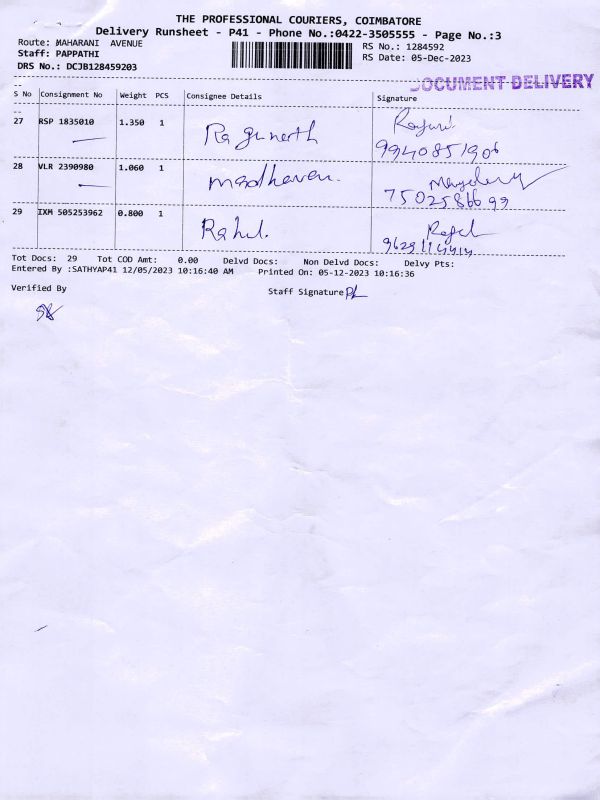 THE PROFESSIONAL COURIERS, COIMBATORE
Delivery Runsheet - P41 - Phone No.:0422-3505555 - Page No.:3
Route: MAHARANI AVENUE
RS No.: 1284592
Staff: PAPPATHI
RS Date: 05-Dec-2023
DRS No.: DCJB128459203
DOCUMENT DELIVERY
S No Consignment No Weight PCS Consignee Details Signature
27 RSP 1835010 1.350 1 Ragunerth
9940851906
28 VLR 2390980 1.060 1 madhaven.
7502586699
29 IXM 505253962 0.800 1 Rahul.
Tot Docs: 29 Tot COD Amt: 0.00 Delvd Docs: Non Delvd Docs: Delvy Pts:
Entered By :SATHYAP41 12/05/2023 10:16:40 AM Printed On: 05-12-2023 10:16:36
Verified By Staff Signature